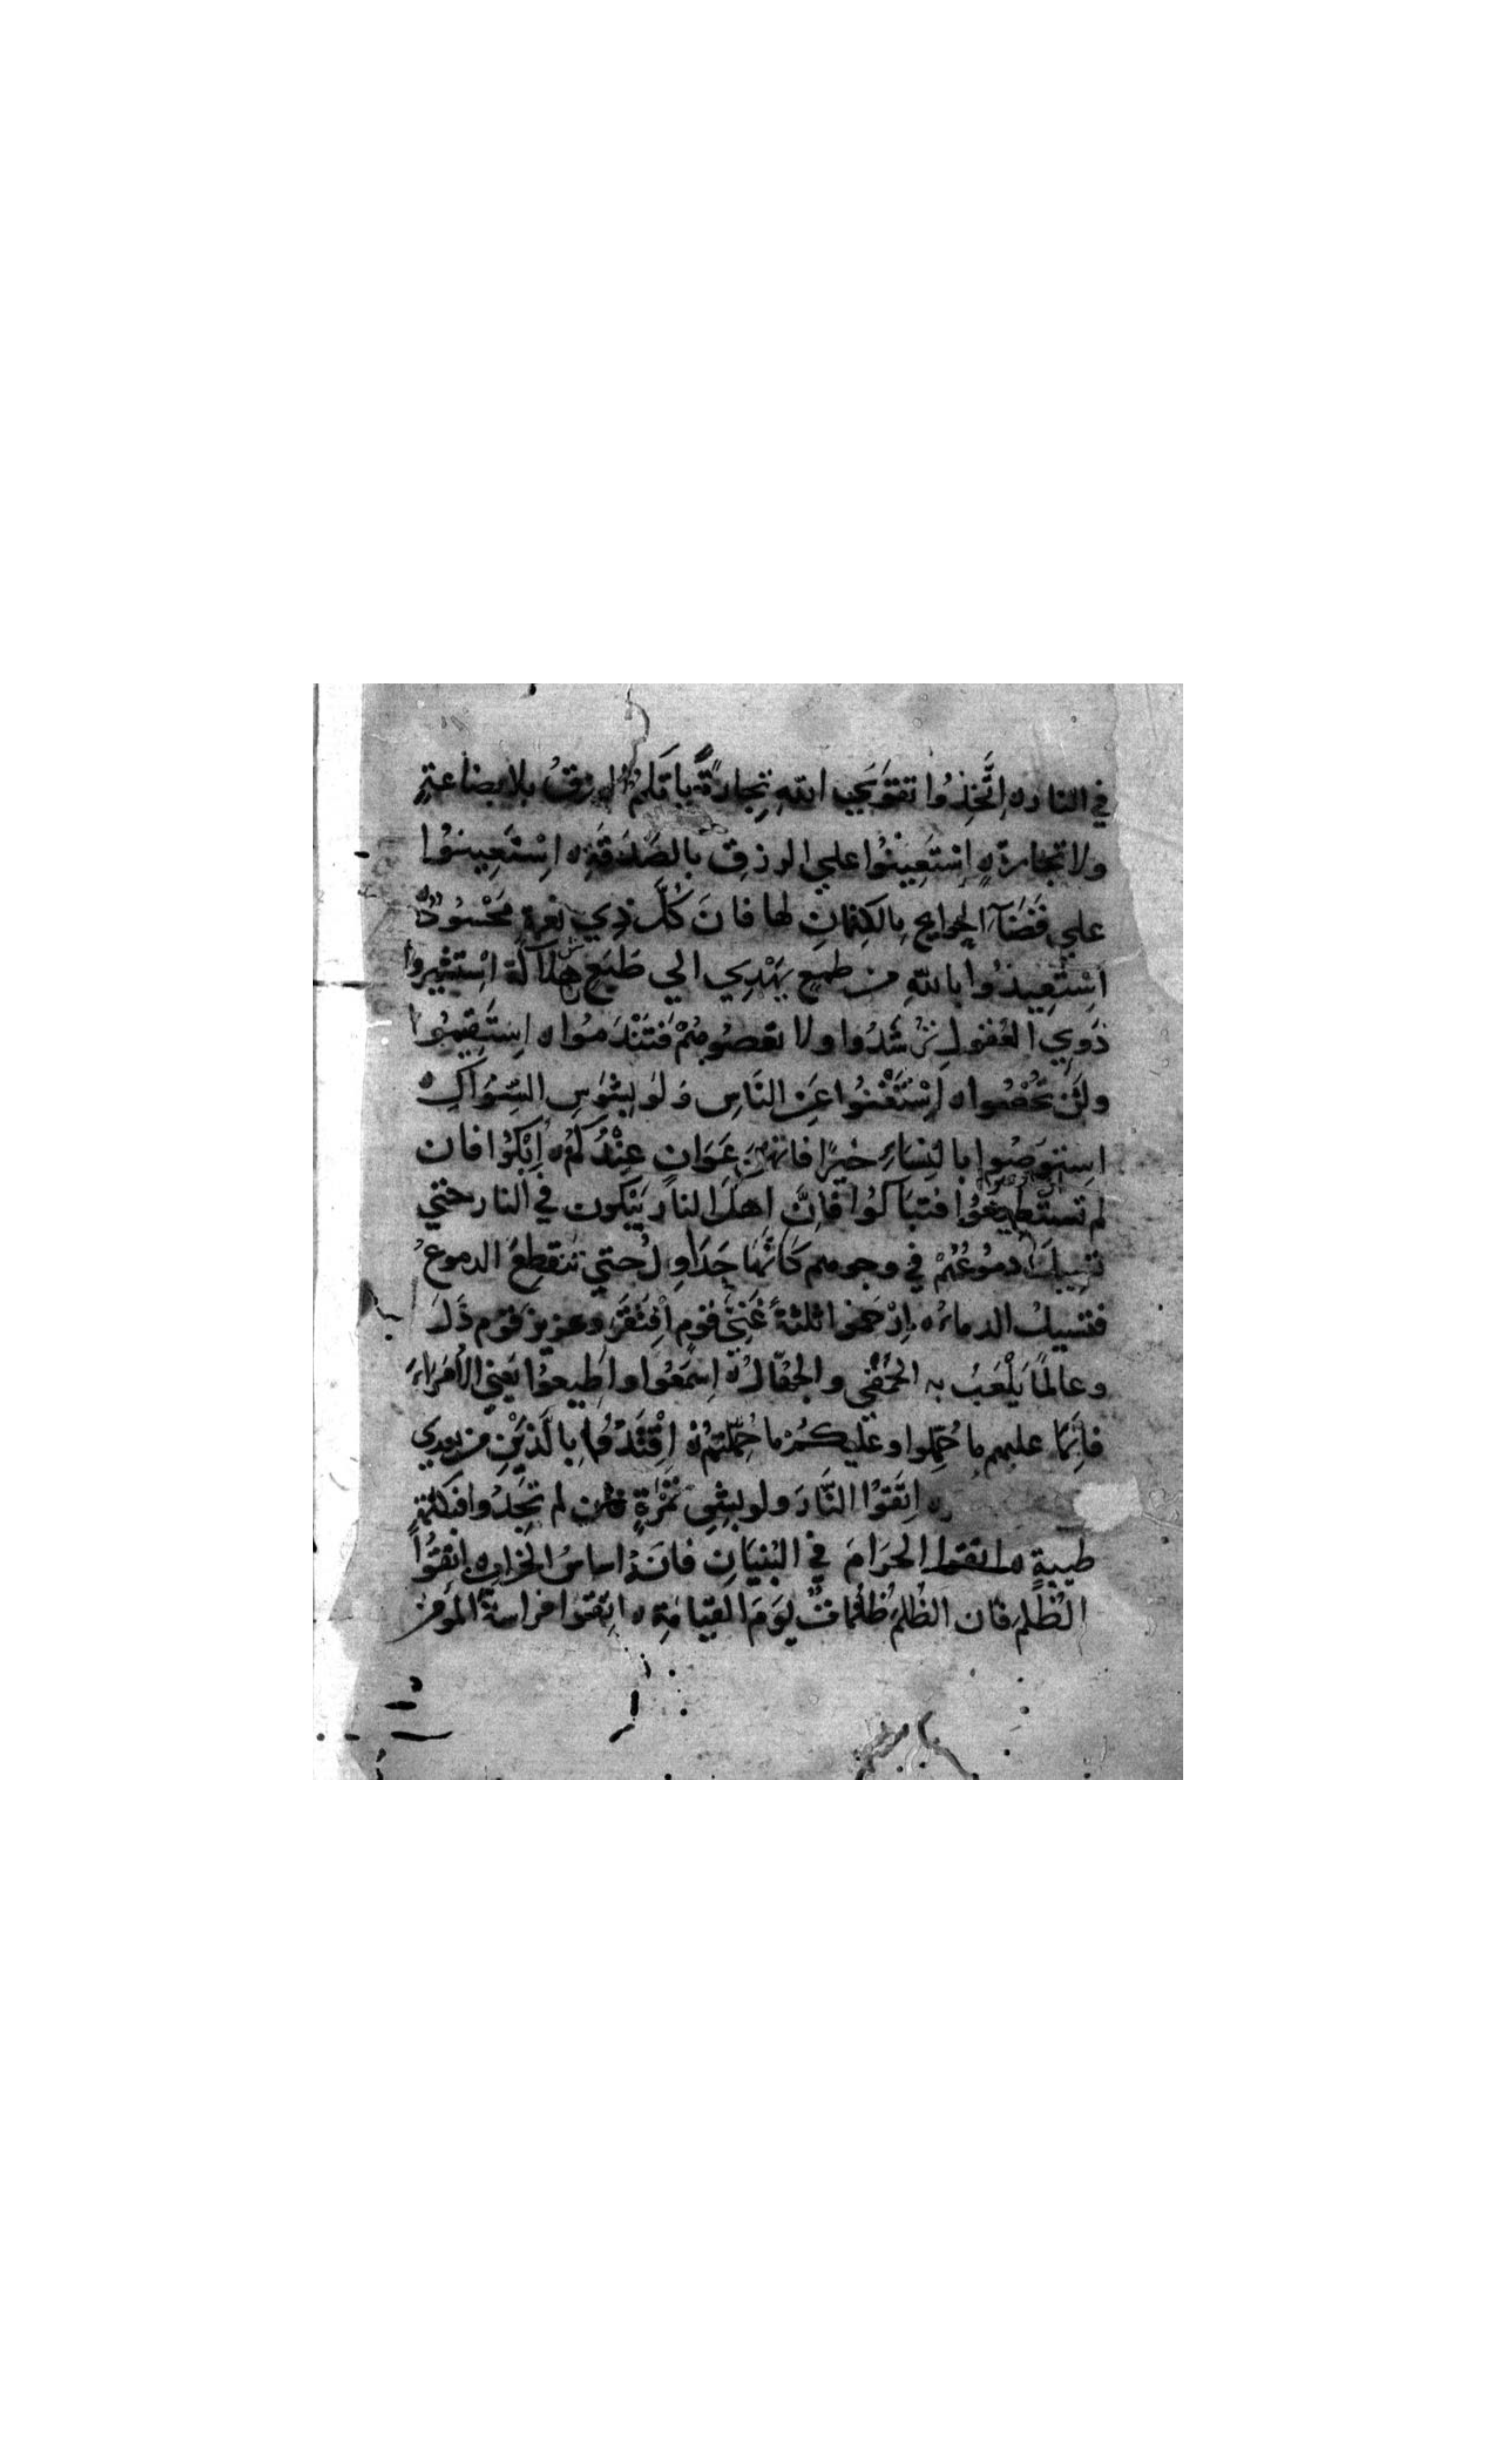 في النار ه اِتَّخِذُوا تقوَي الله تِجارةً ياتكم الرزقُ بلا بضاعةٍ
ولا تجارةٍ ه اِستَعِينُوا علي الرزقِ بالصَدَقَةِ ه اِسْتَعِينُوا
علي قَضَآءِ الحوايج بِالكِتمانِ لها فانَ كُلَّ ذِي نعمةٍ مَحْسُودٌ ه
اِسْتَعِيذُوا بالله من طمعٍ يَهْدِي الي طَبَعٍ ه استشيروا
ذَوِي العُقولِ تَرْشُدُوا ولا تعصُوهُمْ فَتَنْدَمُوا ه اِستَقِيمُوا
ولَن تُحْصُوا ه اِسْتَغْنُوا عَنِ النَاسِ وَلَو بِشَوْصِ السِّوَاكِ ه
اِستوصُوا بالنِسَاءِ خيرًا فانهنَ عَوَانٍ عِنْدَكُمْ ه اِبْكُوا فان
لم تستَطِيعُوا فتباكَوُا فانَّ اهلَ النار يَبْكون في النار حتي
تسِيلَ دمُوعُهُمْ في وجوههم كَانَّهَا جَدَاوِلُ حتي تنقطِعُ الدموعُ
فتسيلُ الدماءُ ه اِرْحَمُوا ثلثةً غَنِيَّ قومٍ اِفْتَقَرَ وعزيزَ قوم ذَلَّ
وعالمًا يَلْعَبُ به الحَمْقَي والجُهّالُ ه اِسمَعُوا واَطِيعوُا يَعنِي الاُمَرَاءَ
فاِنَّمَا عليهم ما حُمِّلوا وعَلَيكُمْ ما حُمِّلتُمْ ه اِقْتَدُوا بِالَّذَيْنِ من بعدي
ه اِتَّقوُا النَّارَ ولو بشِقِّ تَمْرَةٍ فان لم تجِدُوا فبكلمةٍ
طيبةٍ ه اتقوا الحرَامَ في البُنْيَانِ فانهُ اساسُ الخراب ه اِتقُوا
الظُلمَ فان الظُلمَ ظُلُماتٌ يَومَ القيامَةِ ه اِتقوا فراسةَ المؤمن